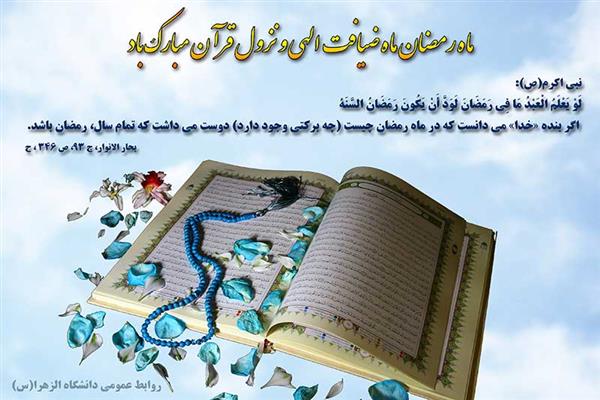 ماه رمضان ماه ضیافت الهی و نزول قرآن مبارک باد
نبی اکرم(ص):
لَوْ یَعْلَمُ الْعَبْدُ مَا فِی رَمَضَانَ لَوَدَّ أَنْ یَکُونَ رَمَضَانُ السَّنَهُ
اگر بنده «خدا» می دانست که در ماه رمضان چیست (چه برکتی وجود دارد) دوست می داشت که تمام سال، رمضان باشد.
بحار الانوار، ج ۹۳، ص ۳۴۶ ، ح
روابط عمومی دانشگاه الزهرا(س)